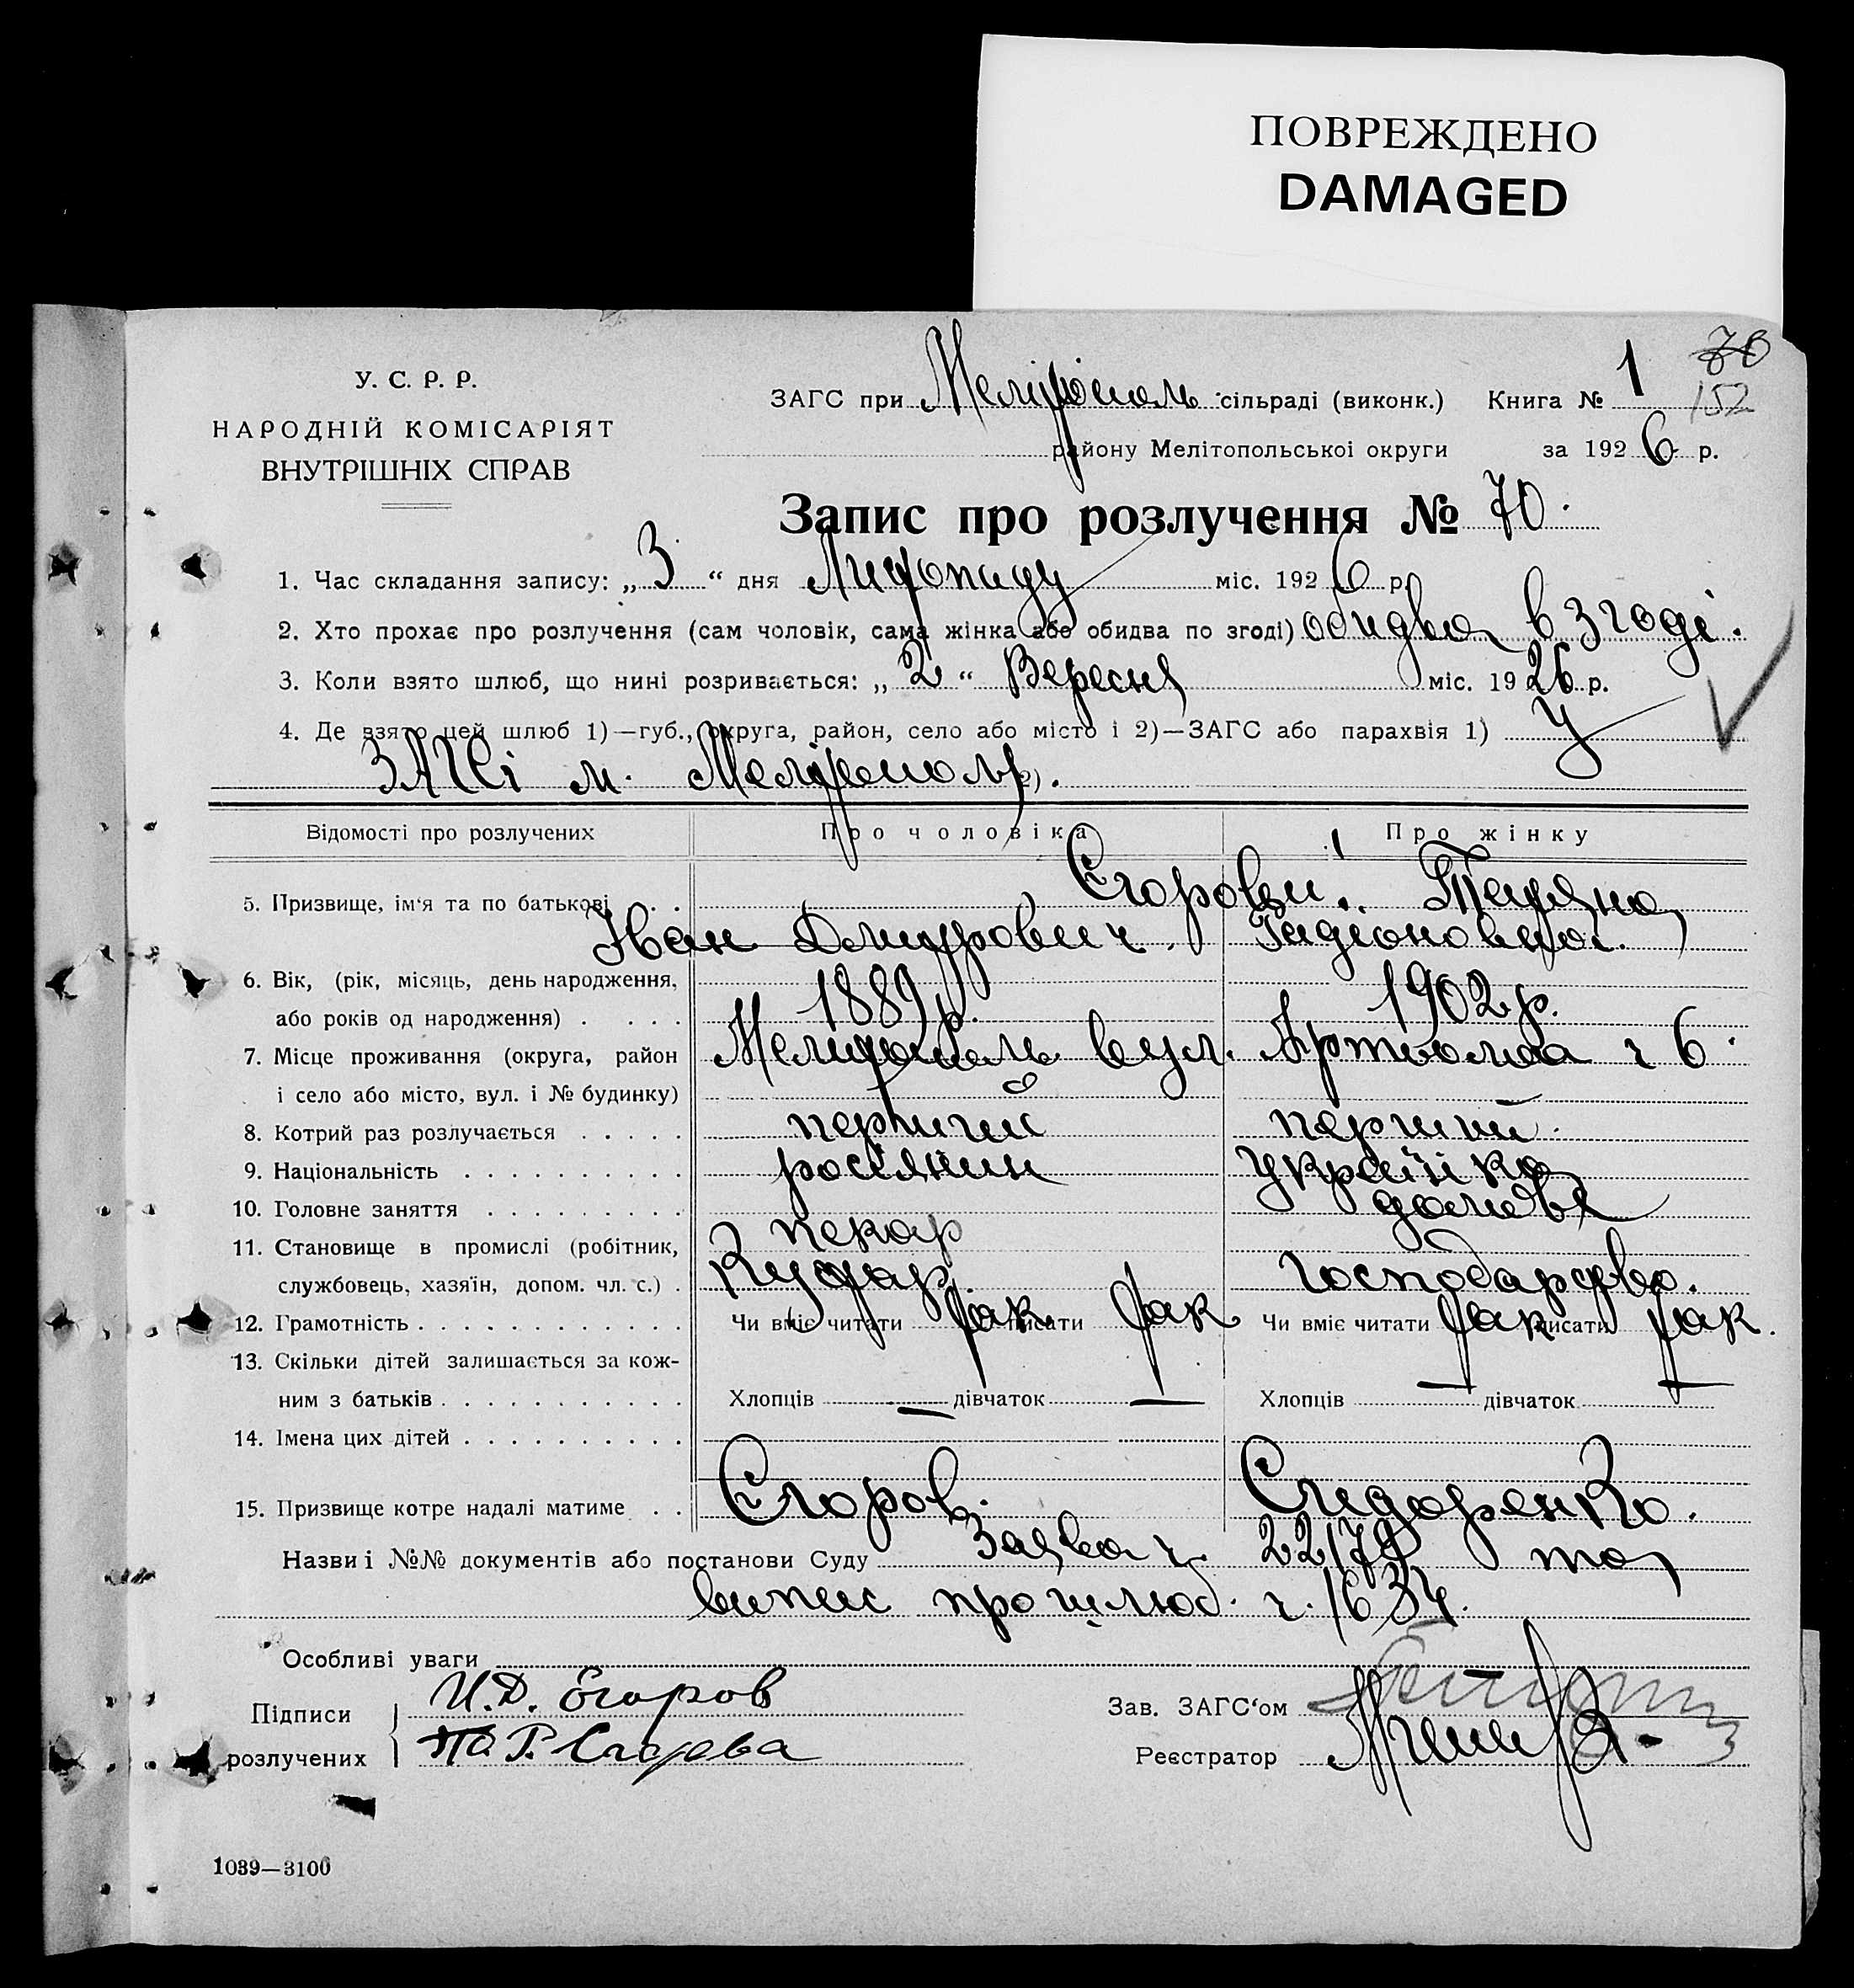 ПОВРЕЖДЕНО
DAMAGED
У. С. Р. Р.
НАРОДНІЙ КОМІСАРІЯТ
ВНУТРІШНІХ СПРАВ
ЗАГС при Мелітополь сільраді (виконк.) Книга № 1
70
152
району Мелітопольської округи за 1926 р.
Запис про розлучення № 70.
1. Час складання запису: „3“ дня Листопаду міс. 1926 р.
2. Хто прохає про розлучення (сам чоловік, сама жінка або обидва по згоді) обидва в згоді.
3. Коли взято шлюб, що нині розривається: „2“ Вересня міс. 1926 р.
4. Де взято цей шлюб 1)—губ., округа, район, село або місто і 2)—ЗАГС або парахвія 1) У
ЗАГСі м. Мелітополь 2).
Відомості про розлучених Про чоловіка Про жінку
5. Призвище, ім‘я та по батькові . . Єгорови: Татяна
Іван Дмитрович Радіоновна.
6. Вік, (рік, місяць, день народження,
або років од народження) . . . . 1889 р. 1902 р.
7. Місце проживання (округа, район Мелитополь вул. Артьома ч 6.
і село або місто, вул. і № будинку)
8. Котрий раз розлучається . . . . . перший перший.
9. Національність . . . . . . . . . . росіянин українка
10. Головне заняття . . . . . . . . . пекар домове
11. Становище в промислі (робітник,
службовець, хазяїн, допом. чл. с.) . Кустар. господарство.
12. Грамотність . . . . . . . . . . . . Чи вміє читати так писати так Чи вміє читати так писати так.
13. Скільки дітей залишається за кож-
ним з батьків . . . . . . . . . . . Хлопців — дівчаток — Хлопців — дівчаток —
14. Імена цих дітей . . . . . . . . . .
15. Призвище котре надалі матиме . . Єгоров. Сидоренко.
Назви і №№ документів або постанови Суду Заява ч. 22179 та
випис про шлюб. ч. 1634.
Особливі уваги
Підписи розлучених
И. Д. Егоров
Т. Р. Егорова
Зав. ЗАГС‘ом
Реєстратор
1039—3100